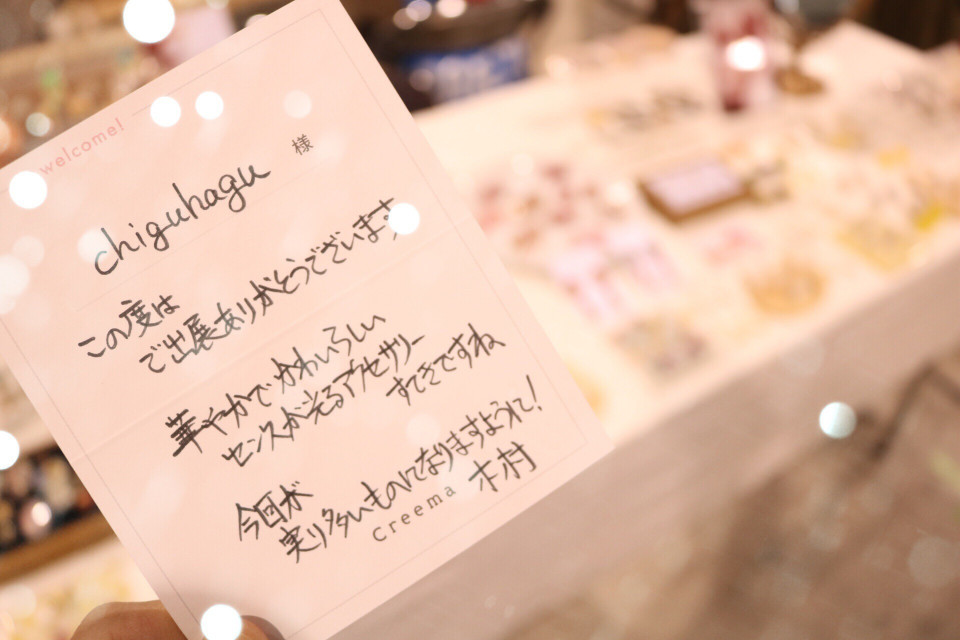 welcome!
chiguhagu 様
この度は
ご出展ありがとうございます
華やかで かわいらしい
センスが光るアクセサリー
すてきですね
今回が
実り多いものになりますように!
creema 木村